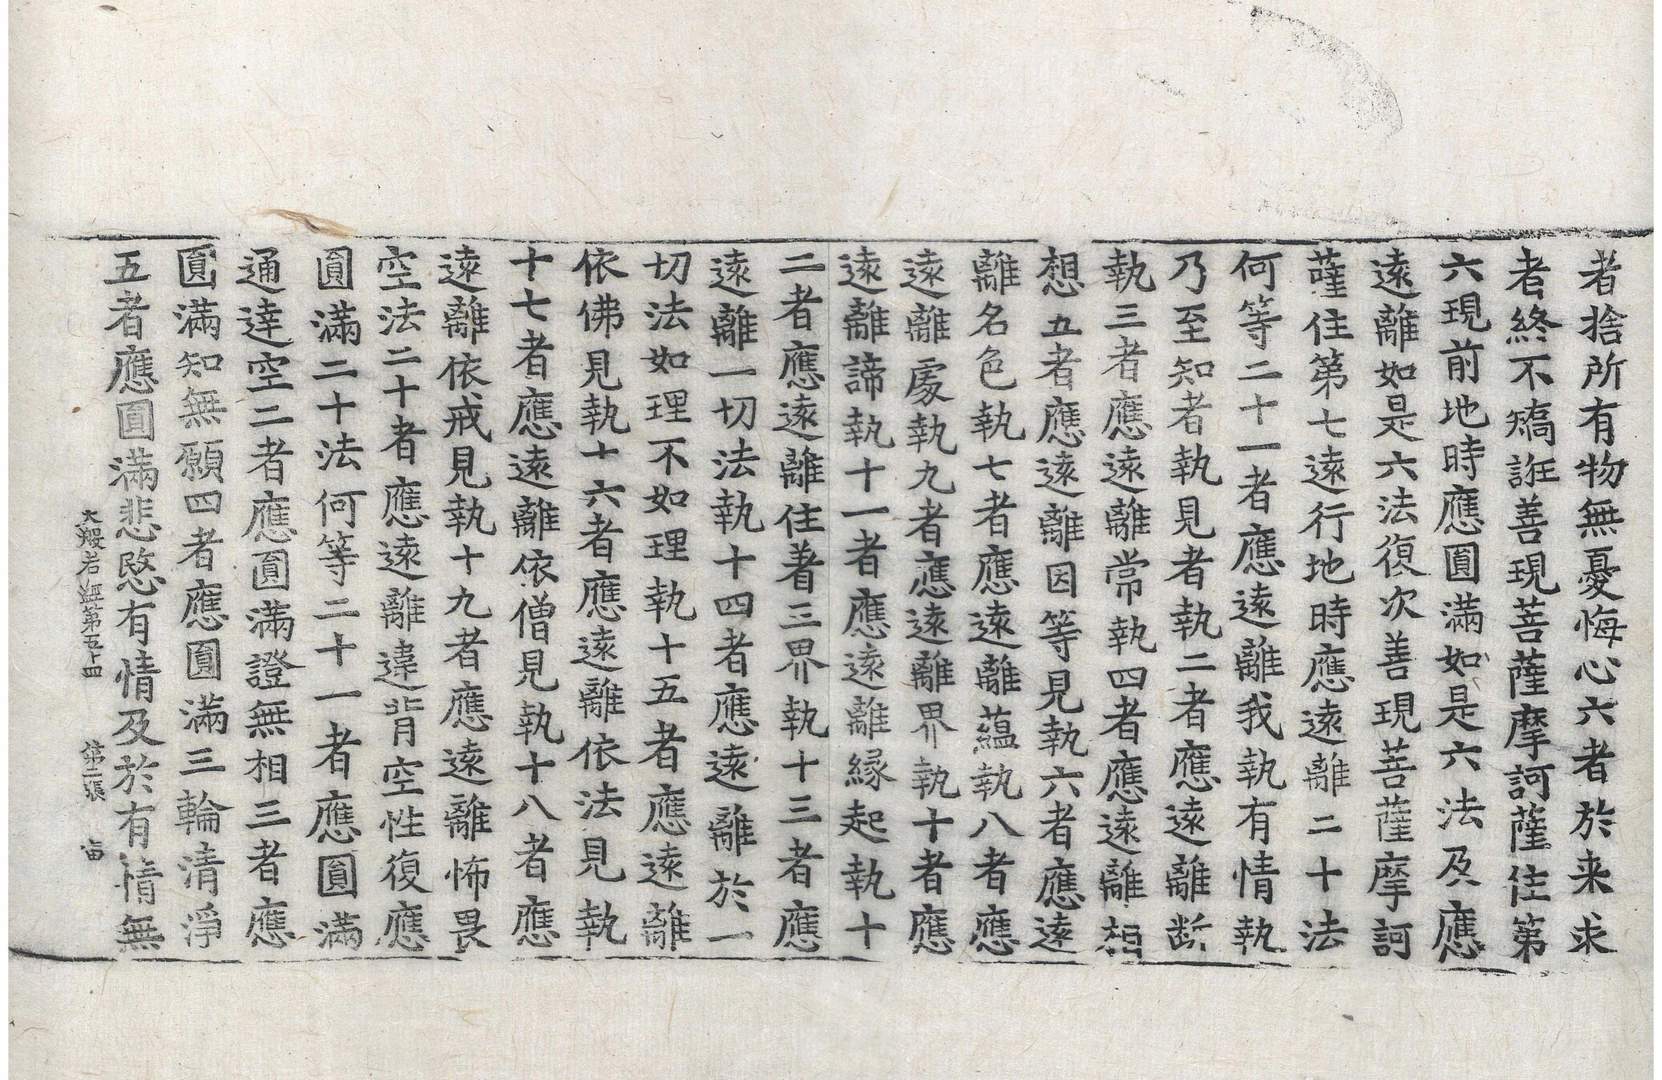 者捨所有物無憂悔心六者於来求
者終不矯誑善現菩薩摩訶薩住第
六現前地時應圓滿如是六法及應
遠離如是六法復次善現菩薩摩訶
薩住第七遠行地時應遠離二十法
何等二十一者應遠離我執有情執
乃至知者執見者執二者應遠離断
執三者應遠離常執四者應遠離相
想五者應遠離因等見執六者應遠
離名色執七者應遠離蘊執八者應
遠離處執九者應遠離界執十者應
遠離諦執十一者應遠離緣起執十
二者應遠離住著三界執十三者應
遠離一切法執十四者應遠離於一
切法如理不如理執十五者應遠離
依佛見執十六者應遠離依法見執
十七者應遠離依僧見執十八者應
遠離依戒見執十九者應遠離怖畏
空法二十者應遠離違背空性復應
圓滿二十法何等二十一者應圓滿
通達空二者應圓滿證無相三者應
圓滿知無願四者應圓滿三輪清淨
五者應圓滿悲愍有情及於有情無
大般若経第五十四 第二張